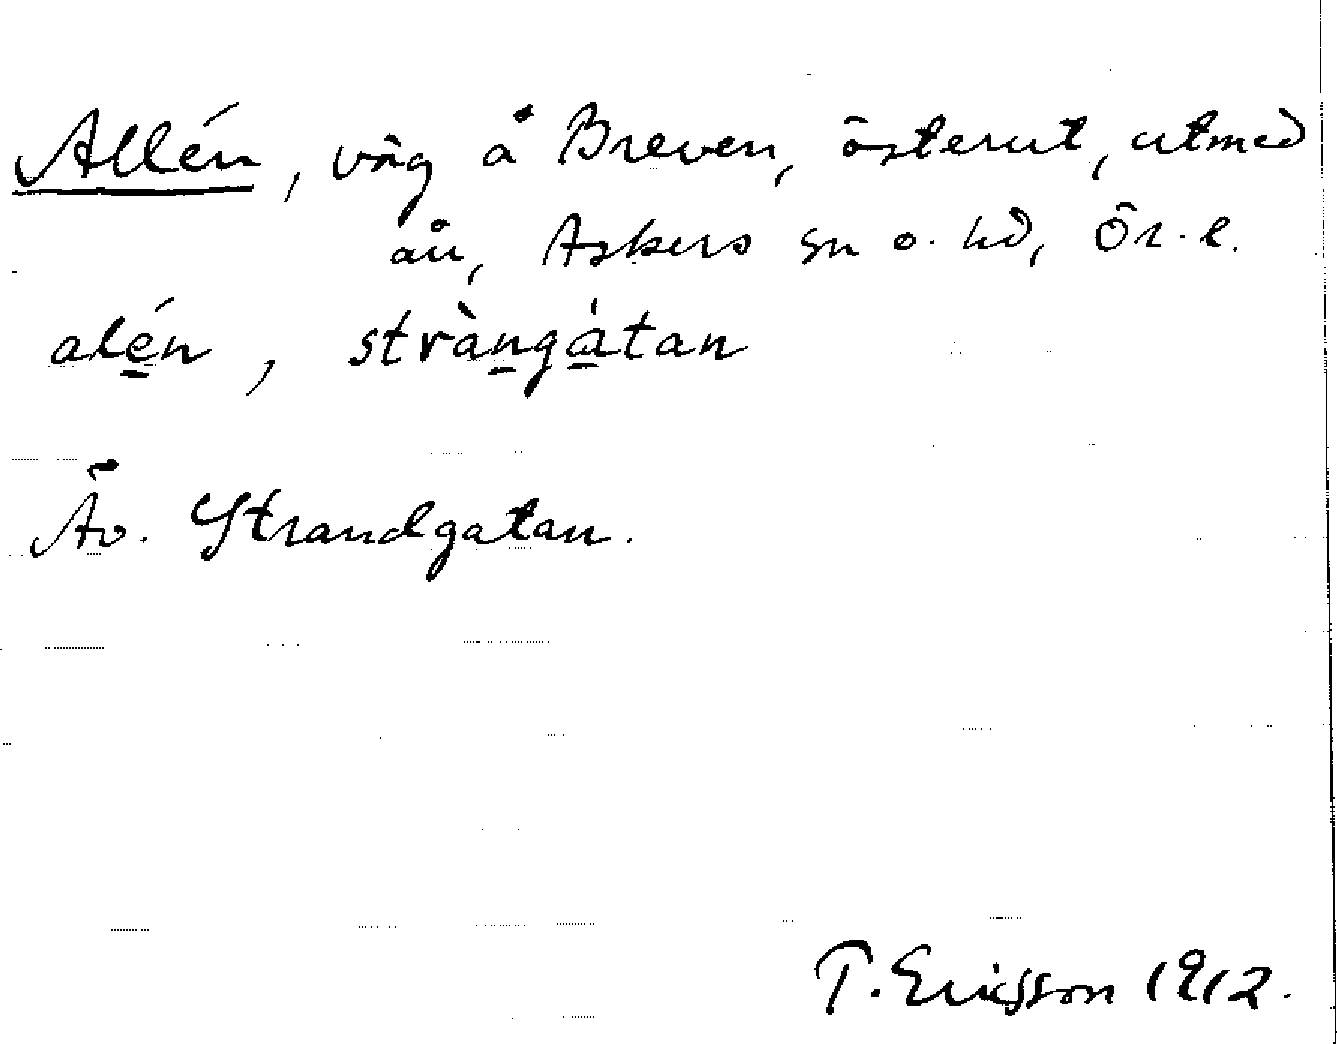 Allén, väg å Breven, österut, utmed
ån, Askers sn o. hd, Ör. l.
alén, stràngátan
Äv. Strandgatan.
T. Ericsson 1912.